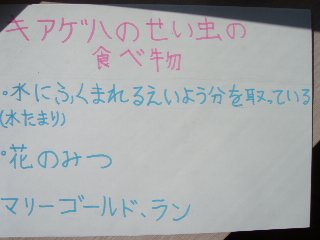 キアゲハのせい虫の
食べ物
・水にふくまれるえいよう分を取っている
(水たまり)
・花のみつ
マリーゴールド、ラン